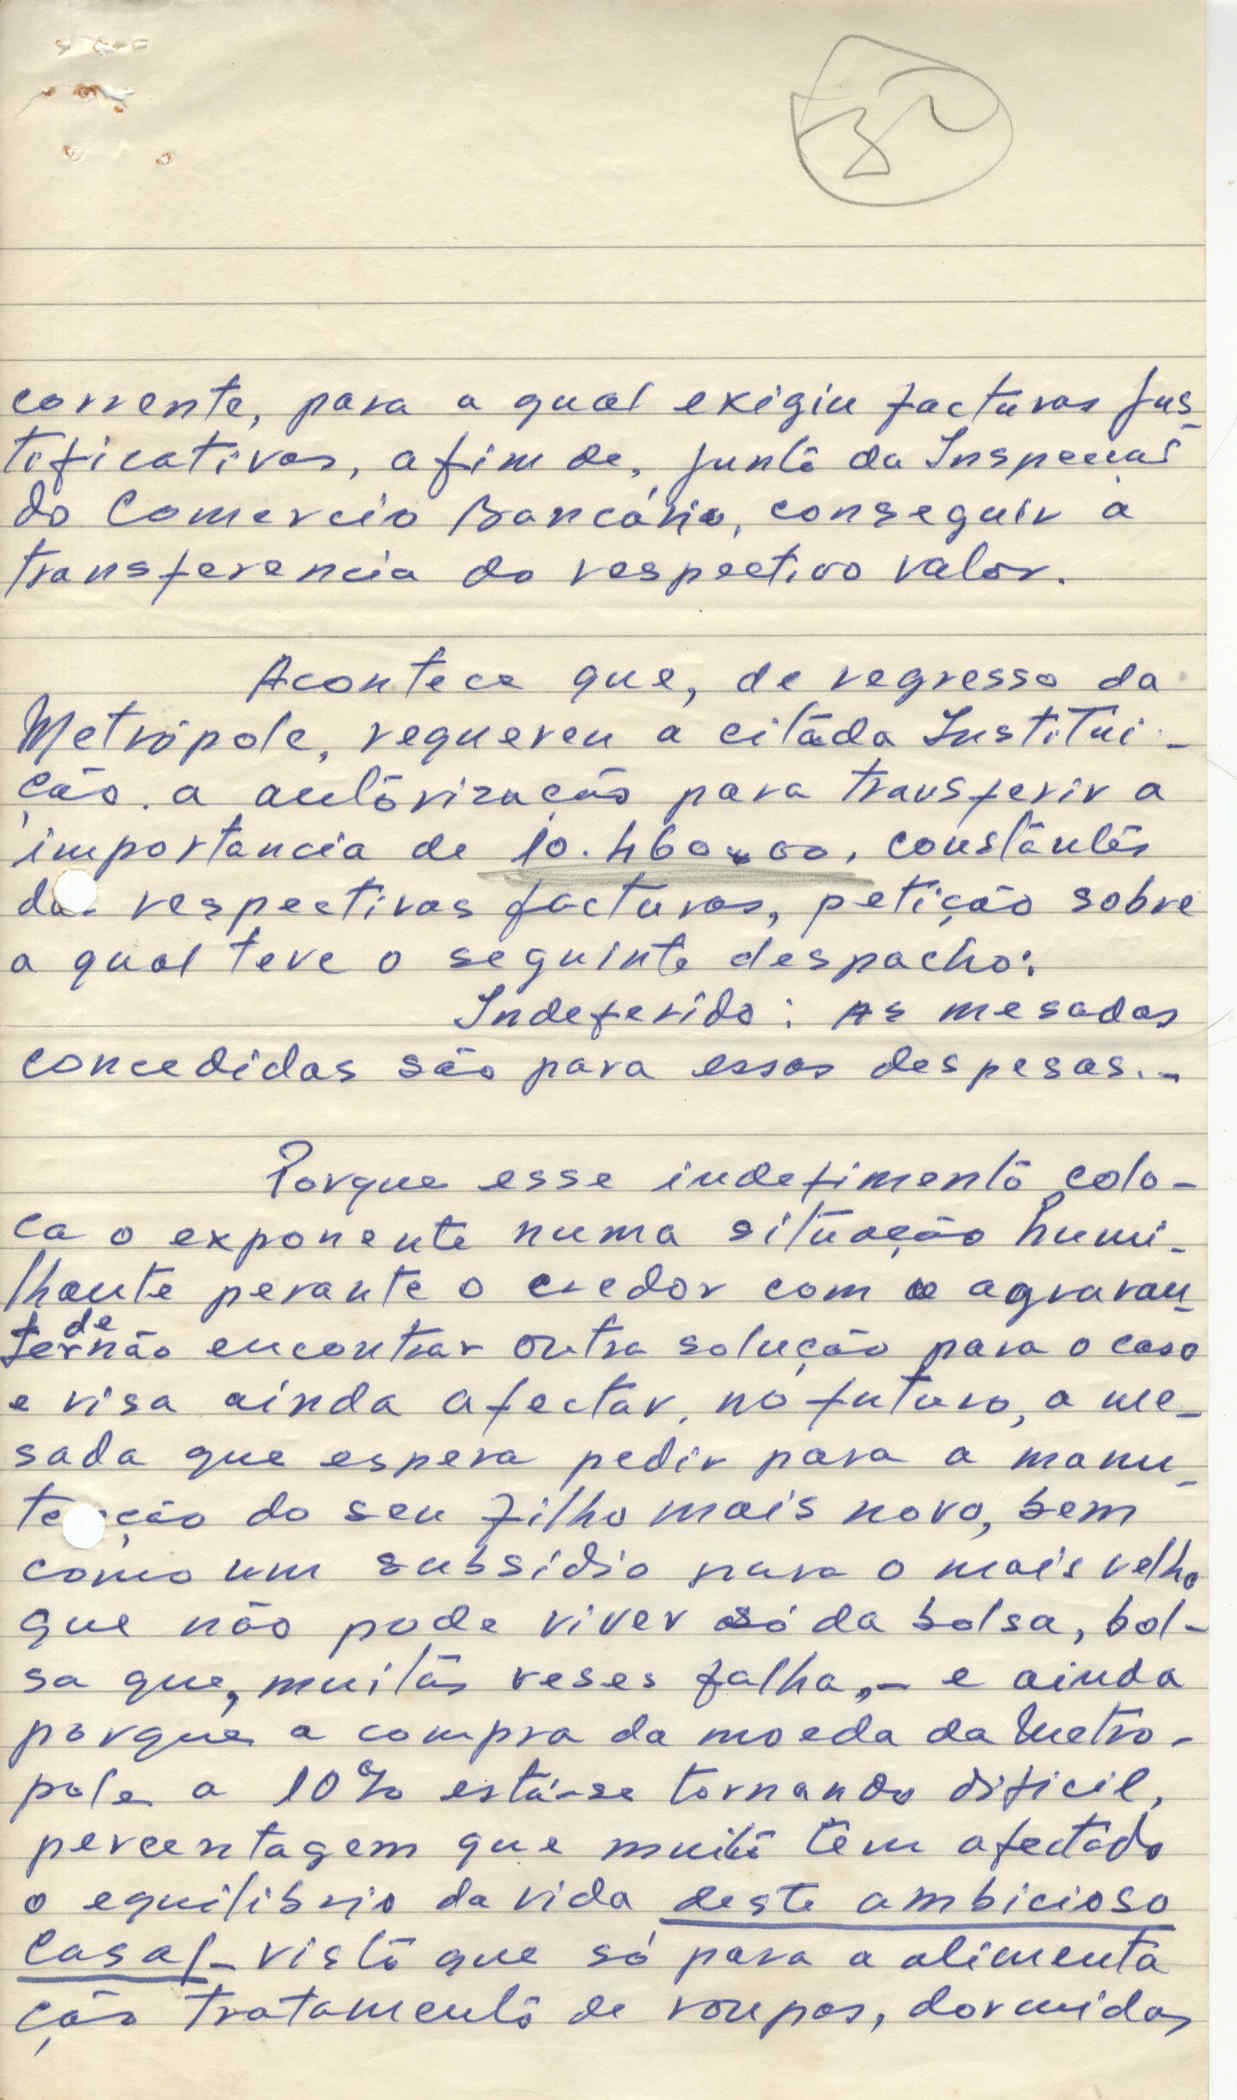 corrente, para a qual exigiu facturas jus-
tificativas, afim de, junto da Inspecção
do Comercio Bancário, conseguir a
transferencia do respectivo valor.
Acontece que, de regresso da
Metrópole, requereu a citada Institui-
ção. a autorização para transferir a
importancia de 10.460$00, constantes
das respectivas facturas, petição sobre
a qual teve o seguinte despacho:
Indeferido: As mesadas
concedidas são para essas despesas.-
Porque esse indefimento colo-
ca o exponente numa situação humi-
lhante perante o credor com o agravan-
te de não encontrar outra solução para o caso
e visa ainda afectar, no futuro, a me-
sada que espera pedir para a manu-
tenção do seu filho mais novo, bem
como um subsidio para o mais velho
que não pode viver só da bolsa, bol-
sa que, muitas veses falha,- e ainda
porque a compra da moeda da Metro-
pole a 10% está-se tornando dificil,
percentagem que muito tem afectado
o equilibrio da vida deste ambicioso
casal- visto que só para a alimenta
ção tratamento de roupas, dormidas